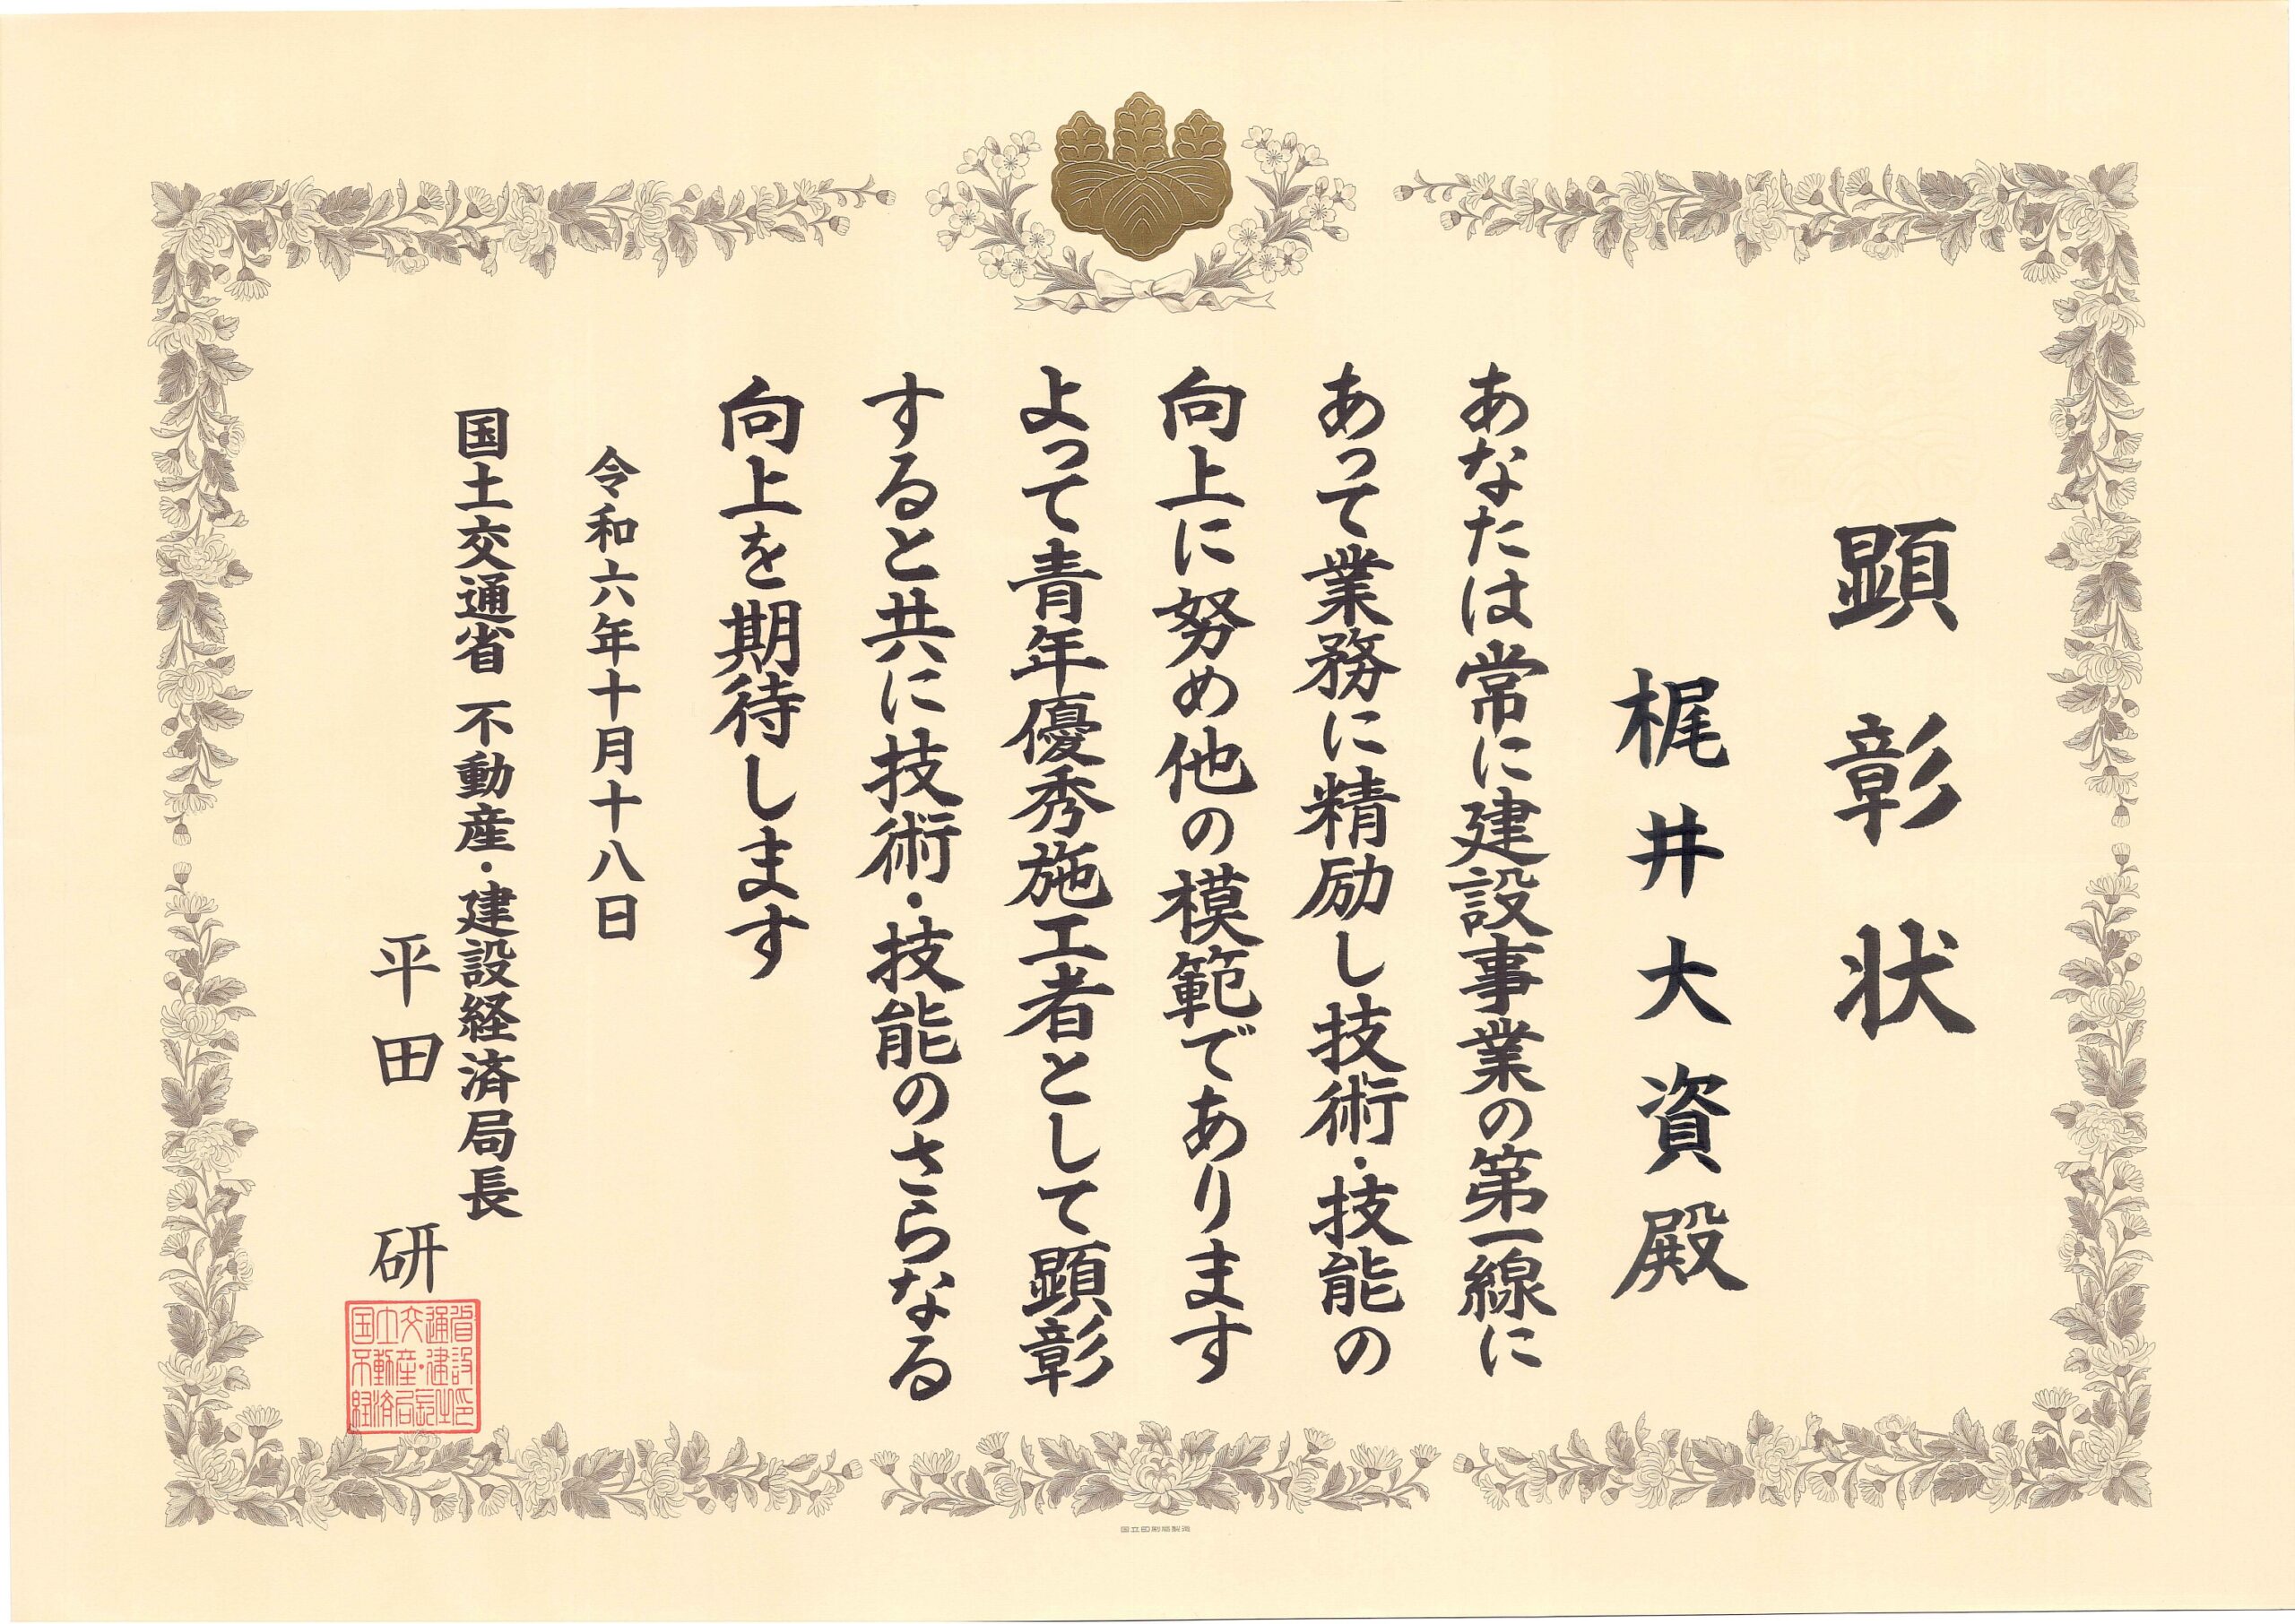 顕彰状
梶井大資殿
あなたは常に建設事業の第一線に
あって業務に精励し技術・技能の
向上に努め他の模範であります
よって青年優秀施工者として顕彰
すると共に技術・技能のさらなる
向上を期待します
令和六年十月十八日
国土交通省 不動産・建設経済局長
平田 研
国土交通省
不動産・建設
経済局長之印
国立印刷局製造